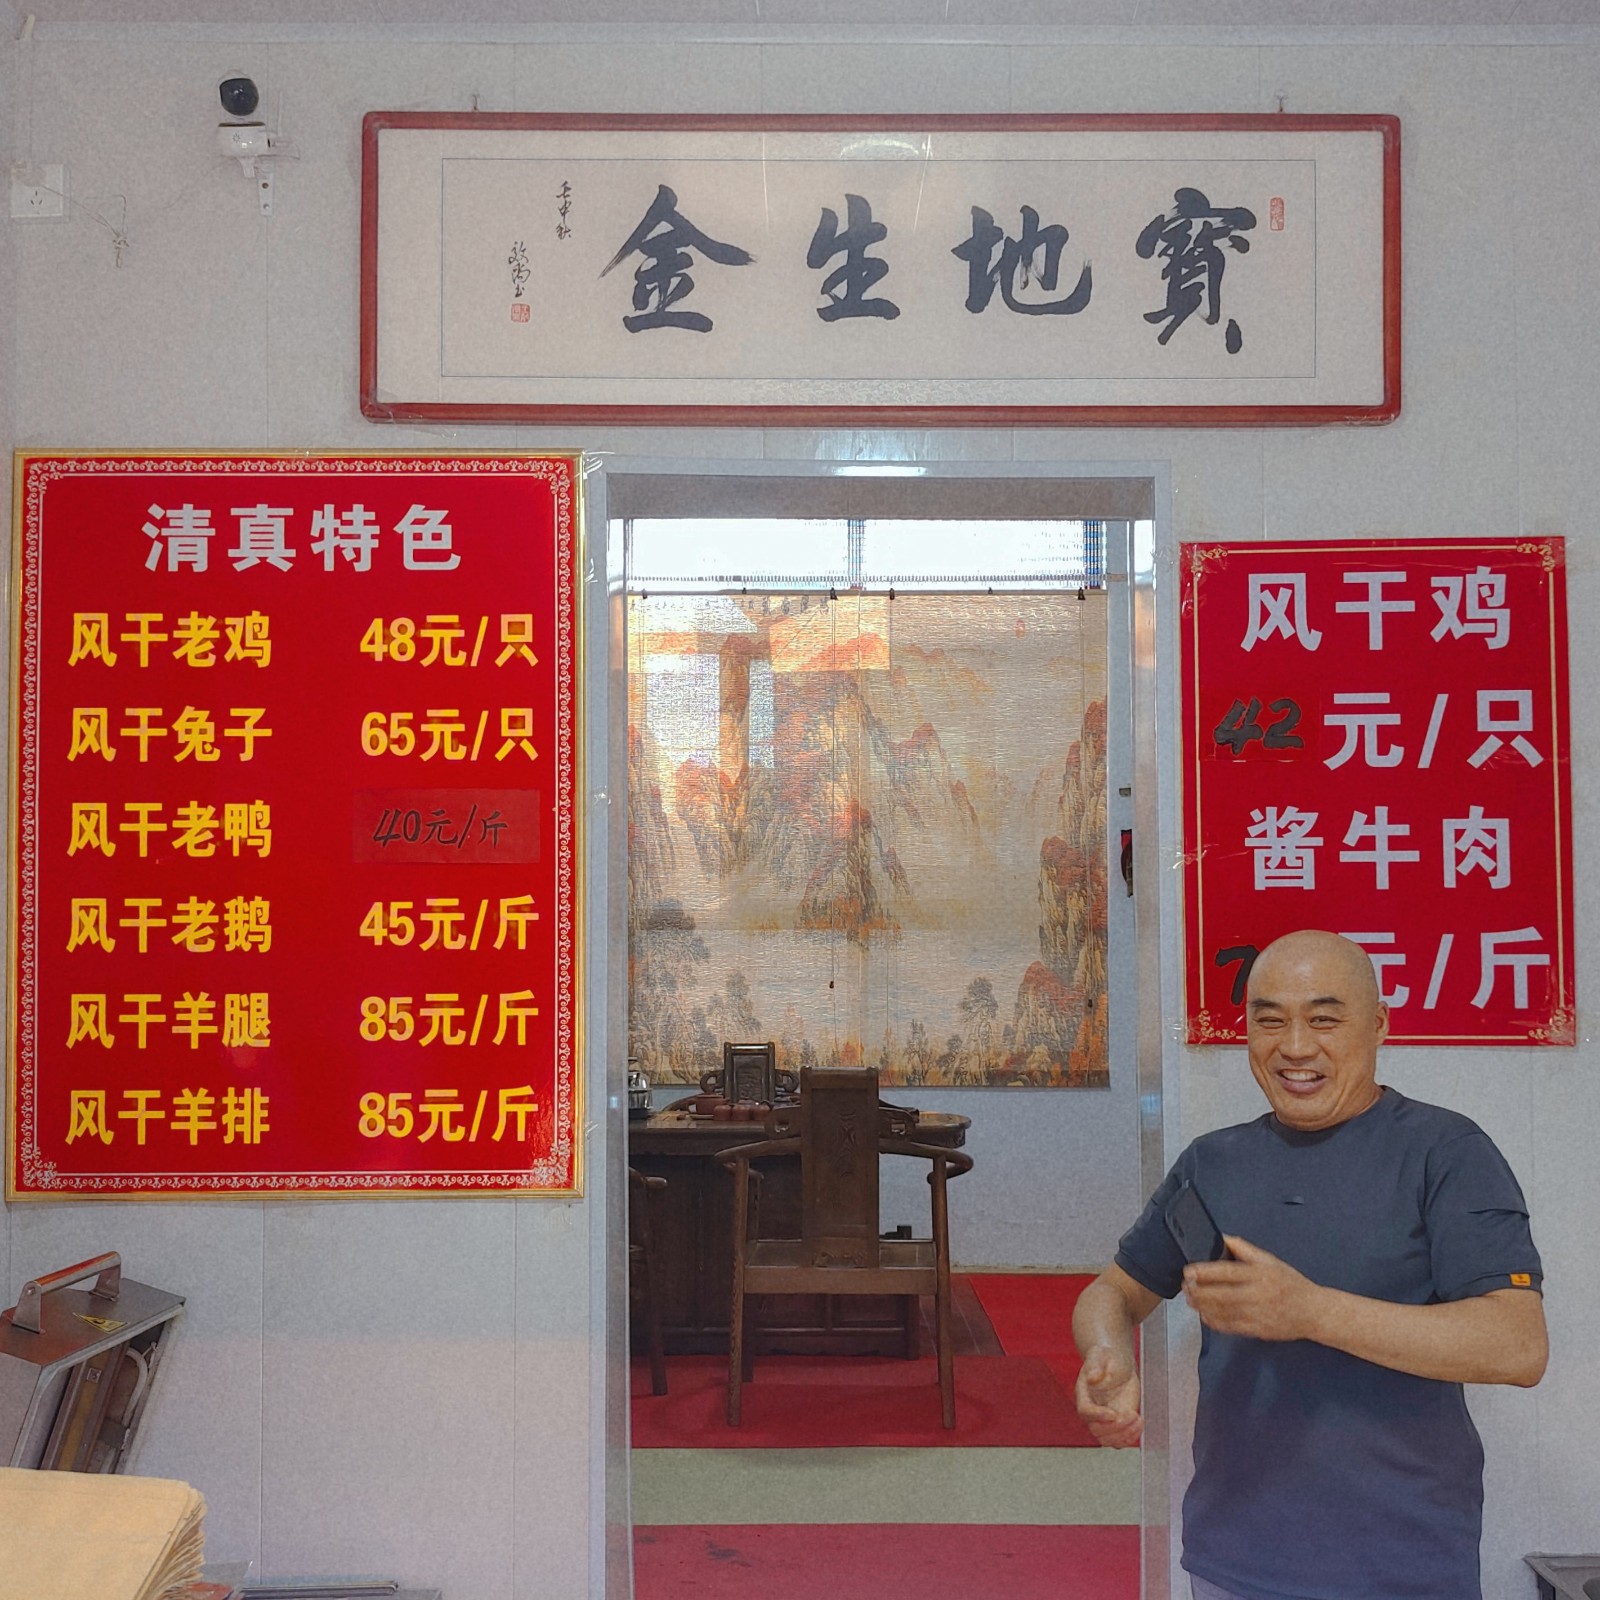 寶地生金
壬申秋
清真特色
风干老鸡 48元/只
风干兔子 65元/只
风干老鸭 40元/斤
风干老鹅 45元/斤
风干羊腿 85元/斤
风干羊排 85元/斤
风干鸡
42元/只
酱牛肉
7 元/斤